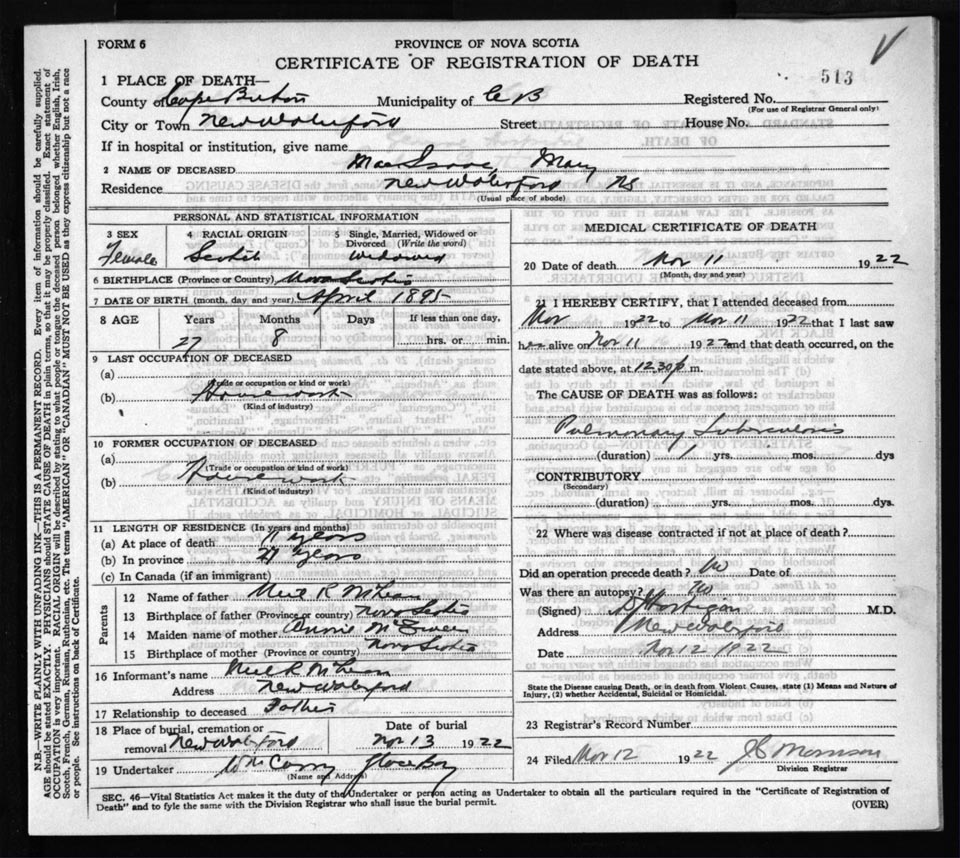 FORM 6
PROVINCE OF NOVA SCOTIA
CERTIFICATE OF REGISTRATION OF DEATH
513
1 PLACE OF DEATH—
County of Cape Breton Municipality of C B Registered No.
(For use of Registrar General only)
City or Town New Waterford Street House No.
If in hospital or institution, give name
2 NAME OF DECEASED MacIsaac Mary
Residence New Waterford NS
(Usual place of abode)
PERSONAL AND STATISTICAL INFORMATION
3 SEX 4 RACIAL ORIGIN 5 Single, Married, Widowed or Divorced (Write the word)
Female Scotch Widowed
6 BIRTHPLACE (Province or Country) Nova Scotia
7 DATE OF BIRTH (month, day and year) April 1895
8 AGE Years Months Days If less than one day,
27 8 hrs. or min.
9 LAST OCCUPATION OF DECEASED
(a)
(Trade or occupation or kind or work)
(b) Housework
(Kind of industry)
10 FORMER OCCUPATION OF DECEASED
(a)
(Trade or occupation or kind or work)
(b) Housework
(Kind of industry)
11 LENGTH OF RESIDENCE (In years and months)
(a) At place of death years
(b) In province 27 years
(c) In Canada (if an immigrant)
Parents
12 Name of father Neil R McLean
13 Birthplace of father (Province or Country) Nova Scotia
14 Maiden name of mother Annie
15 Birthplace of mother (Province or country) Nova Scotia
16 Informant's name Neil R McLean
Address New Waterford
17 Relationship to deceased Father
18 Place of burial, cremation or removal New Waterford
Date of burial
Nov 13 1922
19 Undertaker Glace Bay
(Name and Address)
MEDICAL CERTIFICATE OF DEATH
20 Date of death Nov 11 1922
(Month, day and year)
21 I HEREBY CERTIFY, that I attended deceased from
Nov 1922 to Nov 11 1922 that I last saw
her alive on Nov 11 1922 and that death occurred, on the
date stated above, at 12.30 p.m.
The CAUSE OF DEATH was as follows:
Pulmonary Tuberculosis
(duration) 1 yrs. mos. dys
CONTRIBUTORY
(Secondary)
(duration) yrs. mos. dys.
22 Where was disease contracted if not at place of death?
Did an operation precede death? No Date of
Was there an autopsy? No
(Signed) M.D.
Address New Waterford
Date Nov 12 1922
State the Disease causing Death, or in death from Violent Causes, state (1) Means and Nature of
Injury, (2) whether Accidental, Suicidal or Homicidal.
23 Registrar's Record Number
24 Filed Nov 12 1922 Morrison
Division Registrar
SEC. 46—Vital Statistics Act makes it the duty of the Undertaker or person acting as Undertaker to obtain all the particulars required in the "Certificate of Registration of
Death" and to fyle the same with the Division Registrar who shall issue the burial permit.
(OVER)
N.B.—WRITE PLAINLY WITH UNFADING INK—THIS IS A PERMANENT RECORD. Every item of information should be carefully supplied.
AGE should be stated EXACTLY. PHYSICIANS should STATE CAUSE OF DEATH in plain terms, so that it may be properly classified. Exact statement of
OCCUPATION is very important. RACIAL ORIGIN will be described by stating to what people or tongue the deceased person belonged whether English, Irish,
Scotch, French, German, Russian, Ruthenian, etc. The terms "AMERICAN" OR "CANADIAN" MUST NOT BE USED as they express citizenship but not a race
or people. See instructions on back of Certificate.